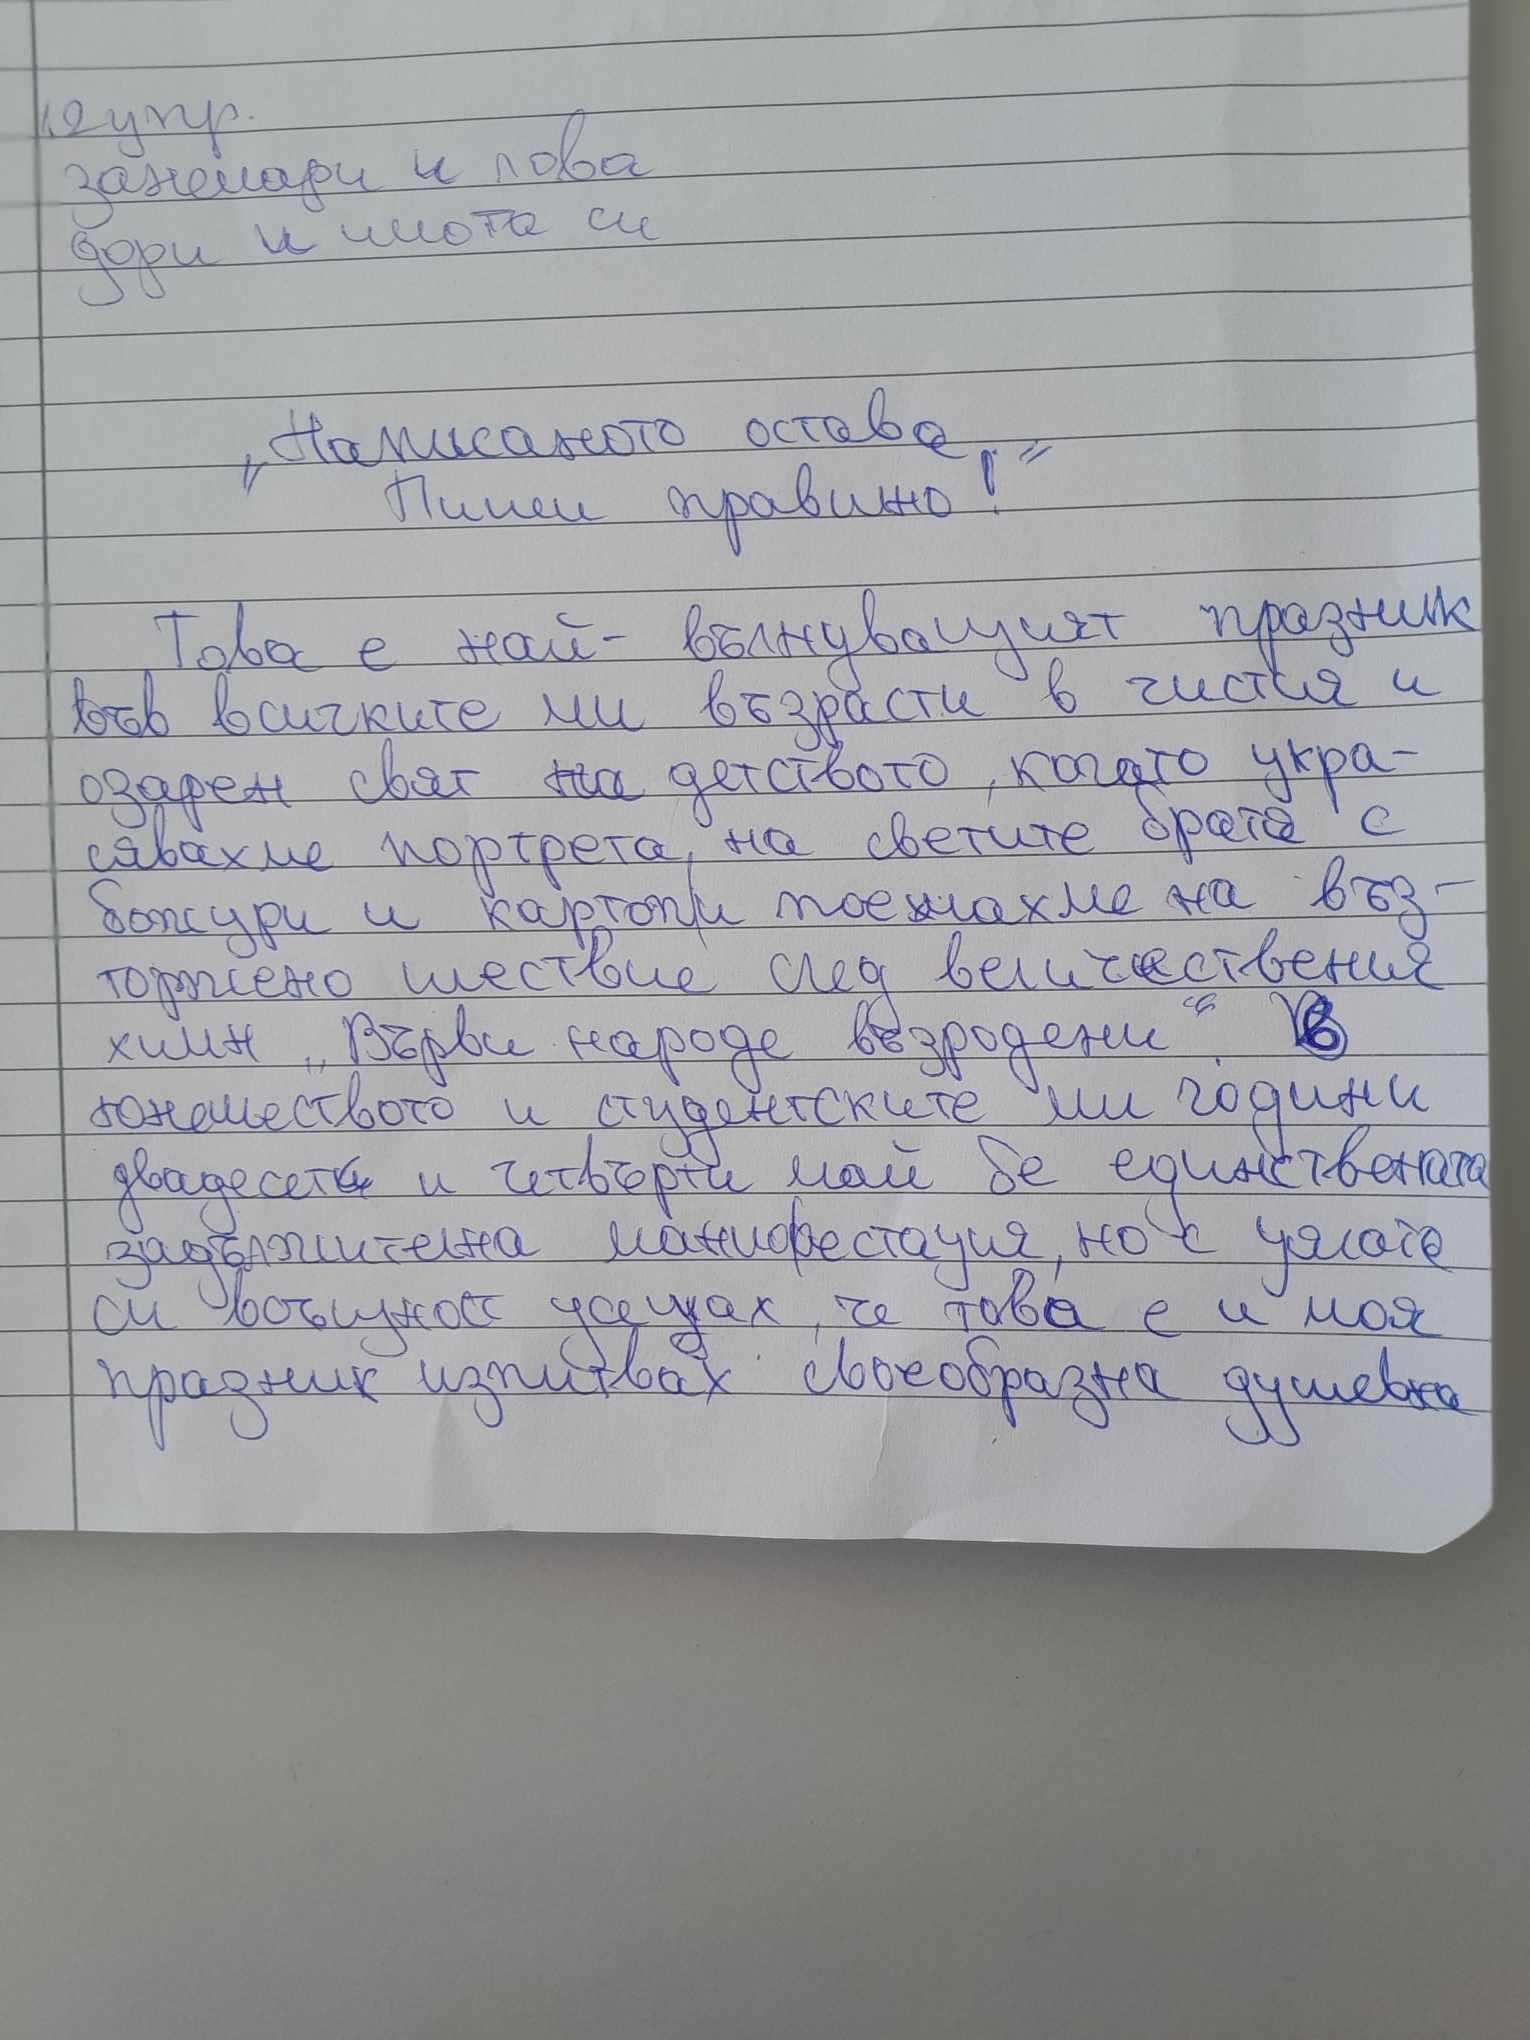 12 упр.
занемари и лова
дори и име​то си
„Написаното остава
Пиши правино!"
Това е най- вълнуващият празник
във всичките ми възрасти в чистия и
озарен свят на детството, когато укра-
сявахме портрета, на светите братя с
божури и картопи поемахме на въз-
торжено шествие след величествения
химн „Върви народе възродени". В
юношеството и студентските ми години
двадесет и четвърти май бе единствената
задължителна манифестация, но с цялата
си усещах, че това е и моя
празник изпитвах своеобразна душевна